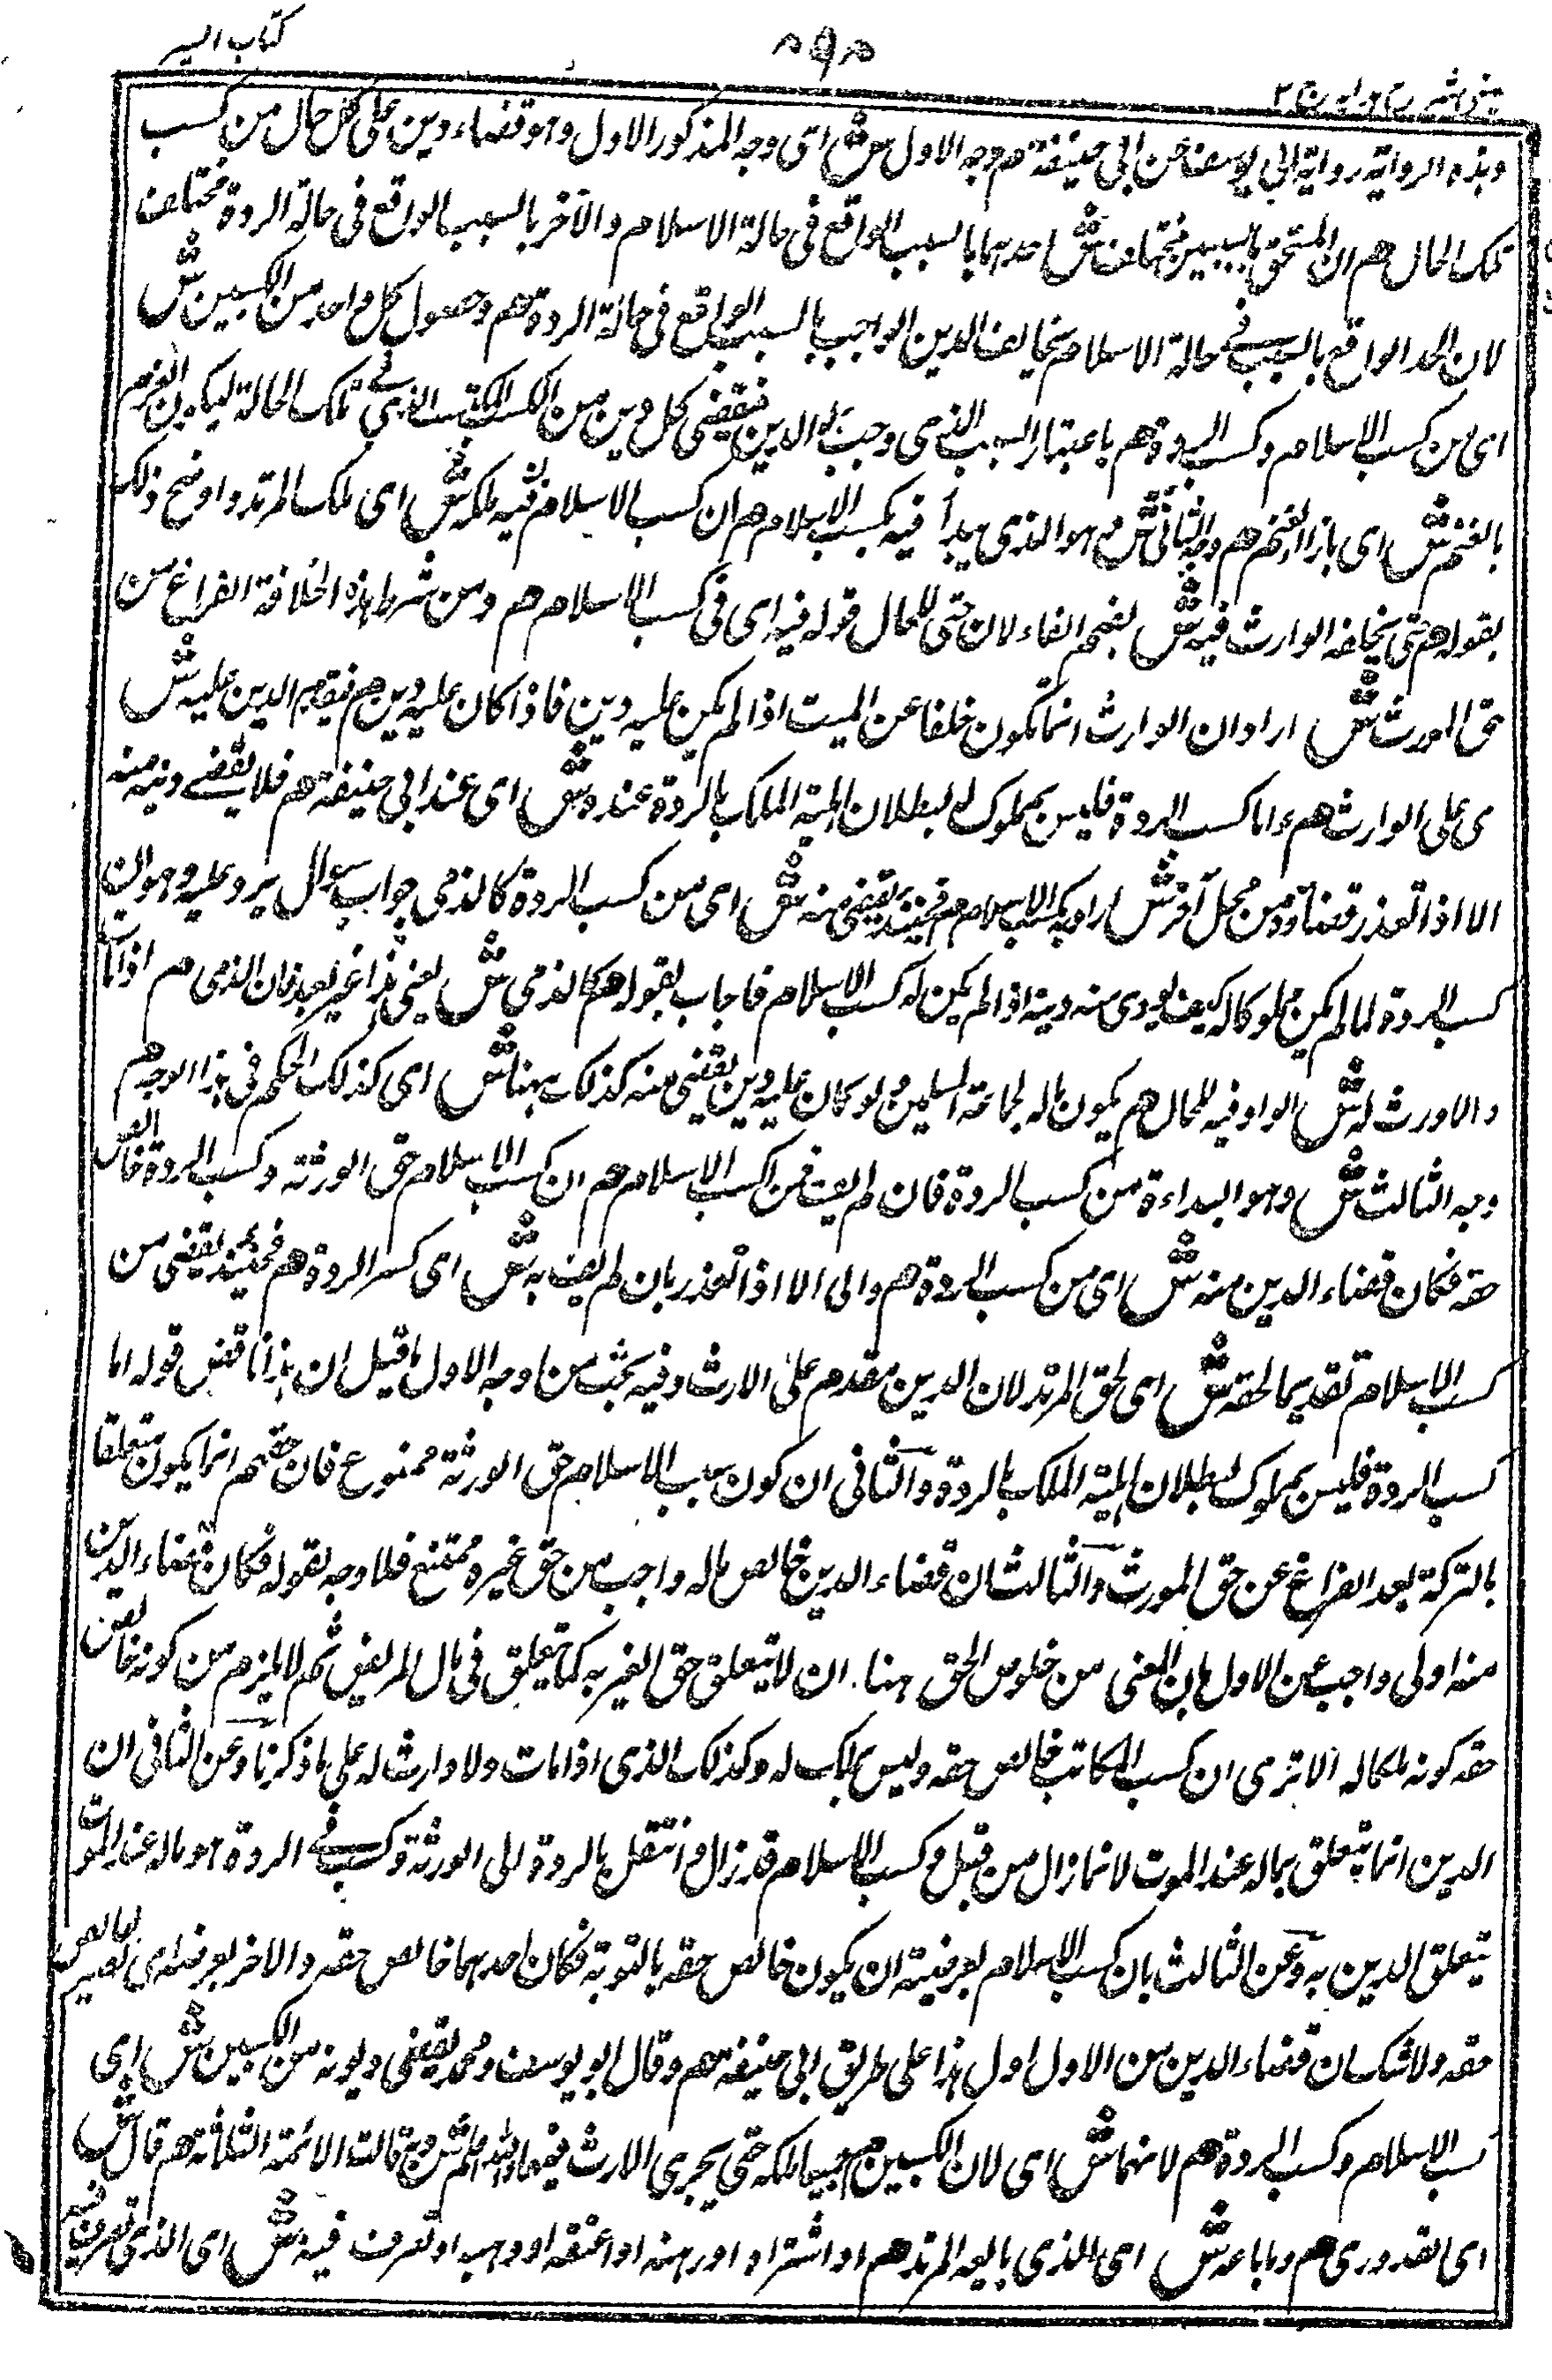 كتاب السير
٨٩٨
وهذه الرواية رواية ابي يوسف عن ابي حنيفة م وجه الاول ش اي وجه المذكور الاول وهو قضاء دين على كل حال من كسب
تلك الحال هم ان المستحق بالسببين مختلف ش احدهما بالسبب الواقع في حالة الاسلام والآخر بالسبب الواقع في حالة الردة مختلف
لان الحد الواقع بالسبب في حالة الاسلام يخالف الدين الواجب بالسبب الواقع في حالة الردة هم وحصول كل واحد من الكسبين ش
اي من كسب الاسلام وكسب الردة هم باعتبار السبب الذي وجب به الدين فيقضى كل دين من الكسب المكتسب في تلك الحالة ليكون الغرم
بالغنم ش اي بازاء الغنم هم وجه الثاني ش وهو الذي يبدأ فيه بكسب الاسلام هم ان كسب الاسلام فيه ملكه ش اي ملك المرتد واوضح ذلك
بقوله هم حتى يخلفه الوارث فيه ش بضم الفاء لان حتى للحال قوله فيه اي في كسب الاسلام هم ومن شرط هذه الخلافة الفراغ من
حق المورث ش اراد ان الوارث انما يكون خلفا عن الميت اذا لم يكن عليه دين فاذا كان عليه دين هم فيقدم الدين عليه ش
ى على الوارث هم واما كسب الردة فليس بمملوك له لبطلان اهلية الملك بالردة عنده ش اي عند ابي حنيفة هم فلا يقضى دينه منه
الا اذا تعذر قضاؤه من محل آخر ش اراد به كسب الاسلام هم فحينئذ يقضى منه ش اي من كسب الردة كالذمي جواب سؤال يرد عليه وهو ان
كسب الردة لما لم يكن مملوكا له كيف يودى منه دينه اذا لم يكن له كسب الاسلام فاجاب بقوله هم كالذمي ش يعني هذا غير بعيد فان الذمي هم اذا مات
ولا وارث له ش الواو فيه للحال هم يكون ماله لجماعة المسلمين ولو كان عليه دين يقضى منه كذلك ههنا ش اي كذلك الحكم في هذا الوجه هم
وجه الثالث ش وهو البداءة من كسب الردة فان لم يف فمن كسب الاسلام هم ان كسب الاسلام حق الورثة وكسب الردة خالص
حقه فكان قضاء الدين منه ش اي من كسب الردة هم والى الا اذا تعذر بان لم يف به ش اي كسب الردة هم فحينئذ يقضى من
كسب الاسلام تقديما لحقه ش اي لحق المرتد لان الدين مقدم على الارث وفيه بحث من اوجه الاول ما قيل ان هذا ناقض قوله اما
كسب الردة فليس بمملوك لبطلان اهلية الملك بالردة والثاني ان كون سبب الاسلام حق الورثة ممنوع فان حقهم انما يكون متعلقا
بالتركة بعد الفراغ عن حق المورث والثالث ان قضاء الدين خالص ماله واجب من حق غيره ممتنع فلا وجه لقوله فكان قضاء الدين
منه اولى واجيب عن الاول بان المعنى من خلوص الحق ههنا ان لا يتعلق حق الغير به كما يتعلق في مال المريض ثم لا يلزم من كونه خالص
حقه كونه ملكا له الا ترى ان كسب المكاتب خالص حقه وليس بملك له وكذلك الذي اذا مات ولا وارث له على ما ذكرنا وعن الثاني ان
الدين انما يتعلق بماله عند الموت لا بما زال من قبل وكسب الاسلام قد زال وانتقل بالردة الى الورثة وكسب في الردة هو ماله عند الموت
يتعلق الدين به وعن الثالث بان كسب الاسلام بعرضية ان يكون خالص حقه بالتوبة فكان احدهما خالص حقه والاخر بعرضه ان يصير خالص
حقه ولا شك ان قضاء الدين من الاول اول هذا على طريق ابي حنيفة هم وقال ابو يوسف ومحمد يقضى ديونه من الكسبين ش اي
كسب الاسلام وكسب الردة هم لانهما ش اي لان الكسبين هم جميعا ملكه حتى يجري الارث فيهما والله اعلم ش وبه قالت الائمة الثلاثة هم قال ش
اي القدوري هم وما باعه ش اي الذي بايعه المرتد هم او اشتراه او رهنه او اعتقه او وهب او تصرف فيه ش اي الذي تصرف فيه